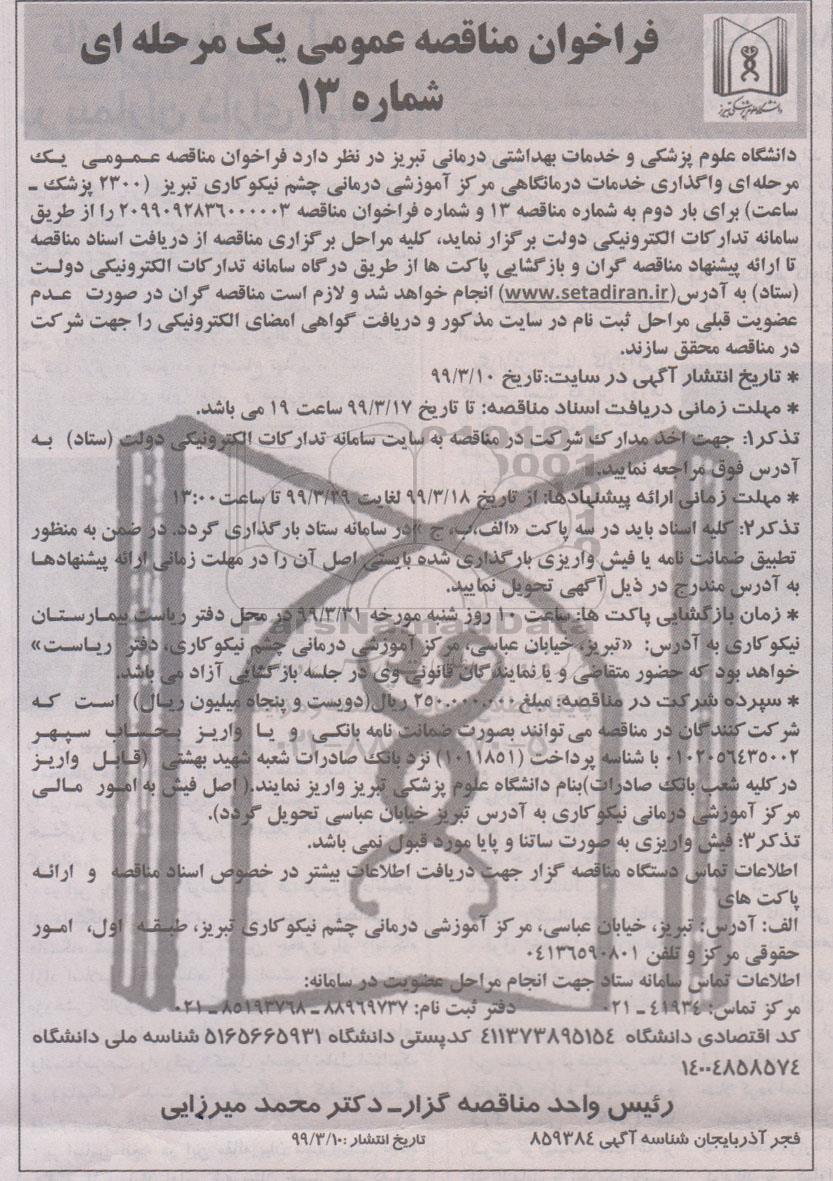 فراخوان مناقصه عمومی یک مرحله ای
شماره ۱۳
دانشگاه علوم پزشکی تبریز
دانشگاه علوم پزشکی و خدمات بهداشتی درمانی تبریز در نظر دارد فراخوان مناقصه عمومی یک
مرحله‌ای واگذاری خدمات درمانگاهی مرکز آموزشی درمانی چشم نیکوکاری تبریز (۲۳۰۰ پزشک ـ
ساعت) برای بار دوم به شماره مناقصه ۱۳ و شماره فراخوان مناقصه ۲۰۹۹۰۹۲۸۳۶۰۰۰۰۰۳ را از طریق
سامانه تدارکات الکترونیکی دولت برگزار نماید، کلیه مراحل برگزاری مناقصه از دریافت اسناد مناقصه
تا ارائه پیشنهاد مناقصه گران و بازگشایی پاکت ها از طریق درگاه سامانه تدارکات الکترونیکی دولت
(ستاد) به آدرس(www.setadiran.ir) انجام خواهد شد و لازم است مناقصه گران در صورت عدم
عضویت قبلی مراحل ثبت نام در سایت مذکور و دریافت گواهی امضای الکترونیکی را جهت شرکت
در مناقصه محقق سازند.
* تاریخ انتشار آگهی در سایت:تاریخ ۹۹/۳/۱۰
* مهلت زمانی دریافت اسناد مناقصه: تا تاریخ ۹۹/۳/۱۷ ساعت ۱۹ می باشد.
تذکر۱: جهت اخذ مدارک شرکت در مناقصه به سایت سامانه تدارکات الکترونیکی دولت (ستاد) به
آدرس فوق مراجعه نمایید.
* مهلت زمانی ارائه پیشنهادها: از تاریخ ۹۹/۳/۱۸ لغایت ۹۹/۳/۲۹ تا ساعت۱۳:۰۰
تذکر۲: کلیه اسناد باید در سه پاکت «الف،ب، ج »در سامانه ستاد بارگذاری گردد. در ضمن به منظور
تطبیق ضمانت نامه یا فیش واریزی بارگذاری شده بایستی اصل آن را در مهلت زمانی ارائه پیشنهادها
به آدرس مندرج در ذیل آگهی تحویل نمایید.
* زمان بازگشایی پاکت ها: ساعت ۱۰ روز شنبه مورخه ۹۹/۳/۳۱ در محل دفتر ریاست بیمارستان
نیکوکاری به آدرس: «تبریز، خیابان عباسی، مرکز آموزشی درمانی چشم نیکوکاری، دفتر ریاست»
خواهد بود که حضور متقاضی و یا نمایندگان قانونی وی در جلسه بازگشایی آزاد می باشد.
* سپرده شرکت در مناقصه: مبلغ۲۵۰.۰۰۰.۰۰۰ ریال(دویست و پنجاه میلیون ریال) است که
شرکت‌کنندگان در مناقصه می توانند بصورت ضمانت نامه بانکی و یا واریز بحساب سپهر
۰۱۰۲۰۵۶۴۳۵۰۰۲ با شناسه پرداخت (۱۰۱۱۸۵۱) نزد بانک صادرات شعبه شهید بهشتی (قابل واریز
درکلیه شعب بانک صادرات)بنام دانشگاه علوم پزشکی تبریز واریز نمایند.( اصل فیش به امور مالی
مرکز آموزشی درمانی نیکوکاری به آدرس تبریز خیابان عباسی تحویل گردد).
تذکر۳: فیش واریزی به صورت ساتنا و پایا مورد قبول نمی باشد.
اطلاعات تماس دستگاه مناقصه گزار جهت دریافت اطلاعات بیشتر در خصوص اسناد مناقصه و ارائه
پاکت های
الف: آدرس: تبریز، خیابان عباسی، مرکز آموزشی درمانی چشم نیکوکاری تبریز، طبقه اول، امور
حقوقی مرکز و تلفن ۰۴۱۳۶۵۹۰۸۰۱
اطلاعات تماس سامانه ستاد جهت انجام مراحل عضویت در سامانه:
مرکز تماس: ۴۱۹۳۴ ـ ۰۲۱ دفتر ثبت نام: ۸۸۹۶۹۷۳۷ ـ ۸۵۱۹۳۷۶۸ ـ ۰۲۱
کد اقتصادی دانشگاه ۴۱۱۳۷۳۸۹۵۱۵۴ کدپستی دانشگاه ۵۱۶۵۶۶۵۹۳۱ شناسه ملی دانشگاه
۱۴۰۰۴۸۵۸۵۷۴
رئیس واحد مناقصه گزار ـ دکتر محمد میرزایی
فجر آذربایجان شناسه آگهی ۸۵۹۳۸۴ تاریخ انتشار :۹۹/۳/۱۰